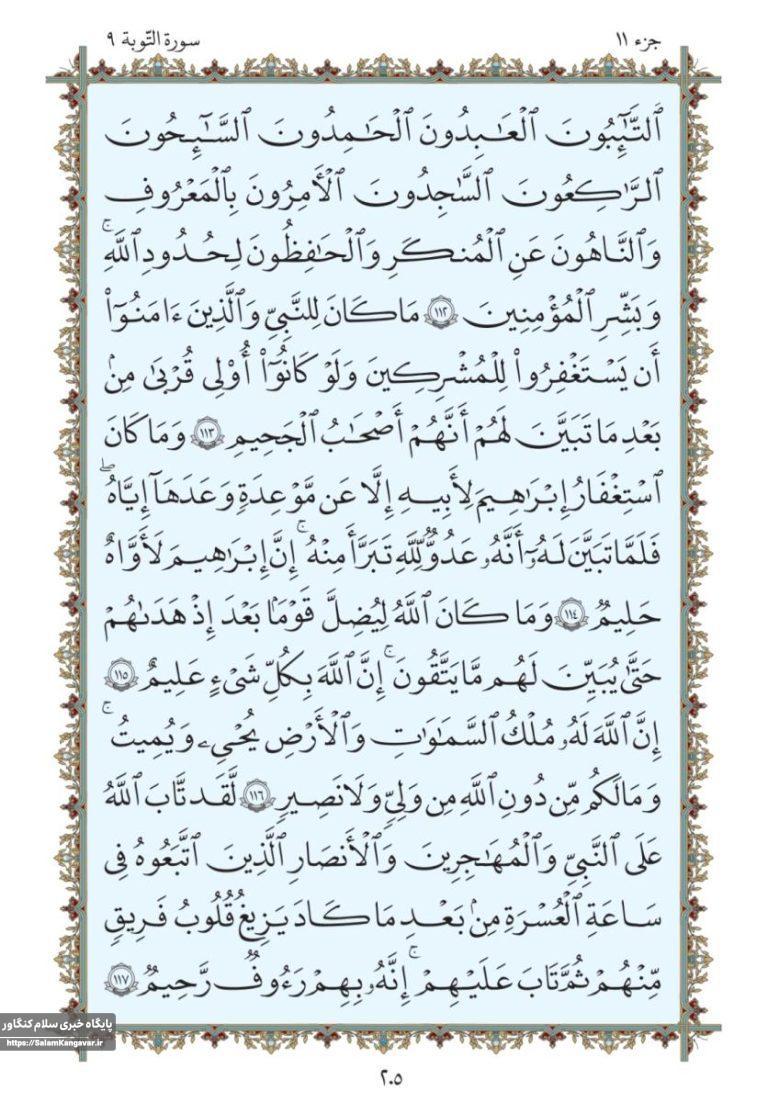 جزء ۱۱
سورة التّوبة ۹
ٱلتَّـٰٓئِبُونَ ٱلْعَـٰبِدُونَ ٱلْحَـٰمِدُونَ ٱلسَّـٰٓئِحُونَ
ٱلرَّٰكِعُونَ ٱلسَّـٰجِدُونَ ٱلْـَٔامِرُونَ بِٱلْمَعْرُوفِ
وَٱلنَّاهُونَ عَنِ ٱلْمُنكَرِ وَٱلْحَـٰفِظُونَ لِحُدُودِ ٱللَّهِ ۗ
وَبَشِّرِ ٱلْمُؤْمِنِينَ ۝١١٢ مَا كَانَ لِلنَّبِىِّ وَٱلَّذِينَ ءَامَنُوٓا۟
أَن يَسْتَغْفِرُوا۟ لِلْمُشْرِكِينَ وَلَوْ كَانُوٓا۟ أُو۟لِى قُرْبَىٰ مِنۢ
بَعْدِ مَا تَبَيَّنَ لَهُمْ أَنَّهُمْ أَصْحَـٰبُ ٱلْجَحِيمِ ۝١١٣ وَمَا كَانَ
ٱسْتِغْفَارُ إِبْرَٰهِيمَ لِأَبِيهِ إِلَّا عَن مَّوْعِدَةٍ وَعَدَهَآ إِيَّاهُ ۖ
فَلَمَّا تَبَيَّنَ لَهُۥٓ أَنَّهُۥ عَدُوٌّ لِّلَّهِ تَبَرَّأَ مِنْهُ ۚ إِنَّ إِبْرَٰهِيمَ لَأَوَّٰهٌ
حَلِيمٌ ۝١١٤ وَمَا كَانَ ٱللَّهُ لِيُضِلَّ قَوْمًۢا بَعْدَ إِذْ هَدَىٰهُمْ
حَتَّىٰ يُبَيِّنَ لَهُم مَّا يَتَّقُونَ ۚ إِنَّ ٱللَّهَ بِكُلِّ شَىْءٍ عَلِيمٌ ۝١١٥
إِنَّ ٱللَّهَ لَهُۥ مُلْكُ ٱلسَّمَـٰوَٰتِ وَٱلْأَرْضِ يُحْىِۦ وَيُمِيتُ ۚ
وَمَا لَكُم مِّن دُونِ ٱللَّهِ مِن وَلِىٍّ وَلَا نَصِيرٍ ۝١١٦ لَّقَد تَّابَ ٱللَّهُ
عَلَى ٱلنَّبِىِّ وَٱلْمُهَـٰجِرِينَ وَٱلْأَنصَارِ ٱلَّذِينَ ٱتَّبَعُوهُ فِى
سَاعَةِ ٱلْعُسْرَةِ مِنۢ بَعْدِ مَا كَادَ يَزِيغُ قُلُوبُ فَرِيقٍ
مِّنْهُمْ ثُمَّ تَابَ عَلَيْهِمْ ۚ إِنَّهُۥ بِهِمْ رَءُوفٌ رَّحِيمٌ ۝١١٧
پایگاه خبری سلام کنگاور
https://SalamKangavar.ir
۲۰۵